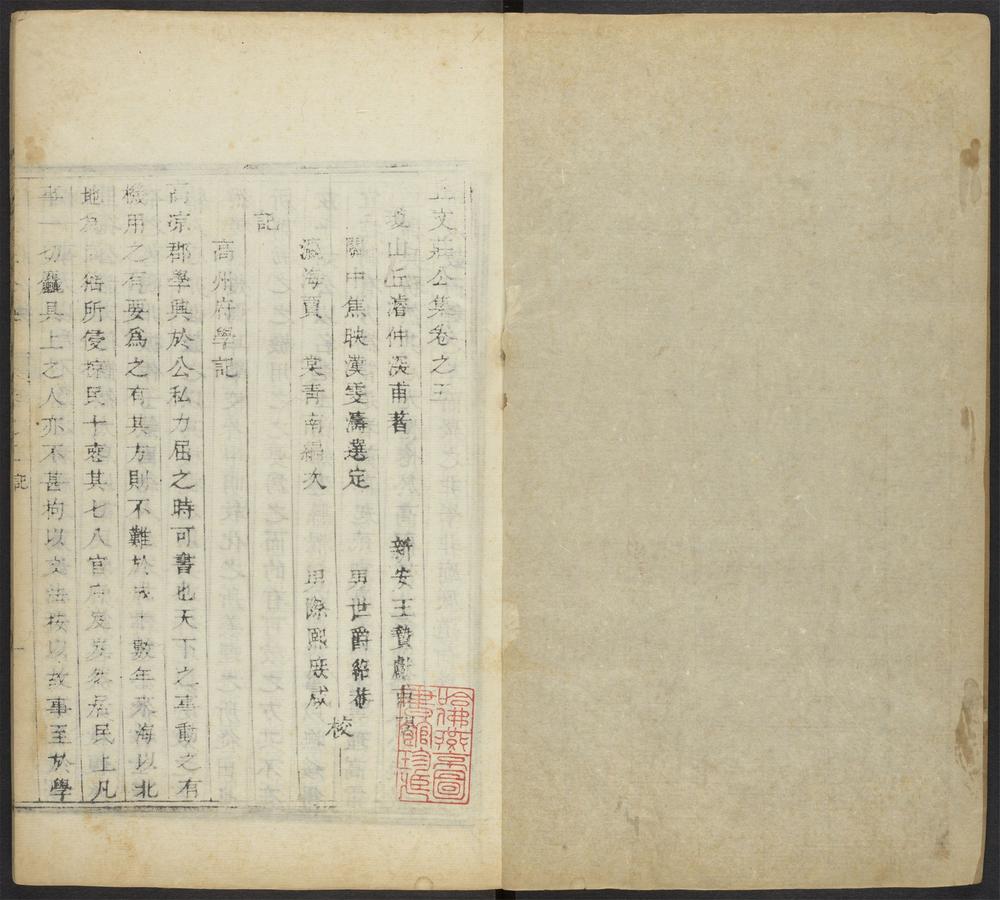 丘文莊公集卷之三
瓊山丘濬仲深甫著 新安王贄獻甫
關中焦映漢雯濤選定 男世爵 校
瀛海賈棠青南編次
記
高州府學記
高凉郡學興於公私力屈之時可書也天下之事動之有
機用之有要爲之有其方則不難於 數年來海以北
地為 所侵掠民十 其七八官府 民上凡
事一切 具上之人亦不甚拘以文法按以故事至於學
記
哈佛燕京圖書館珍